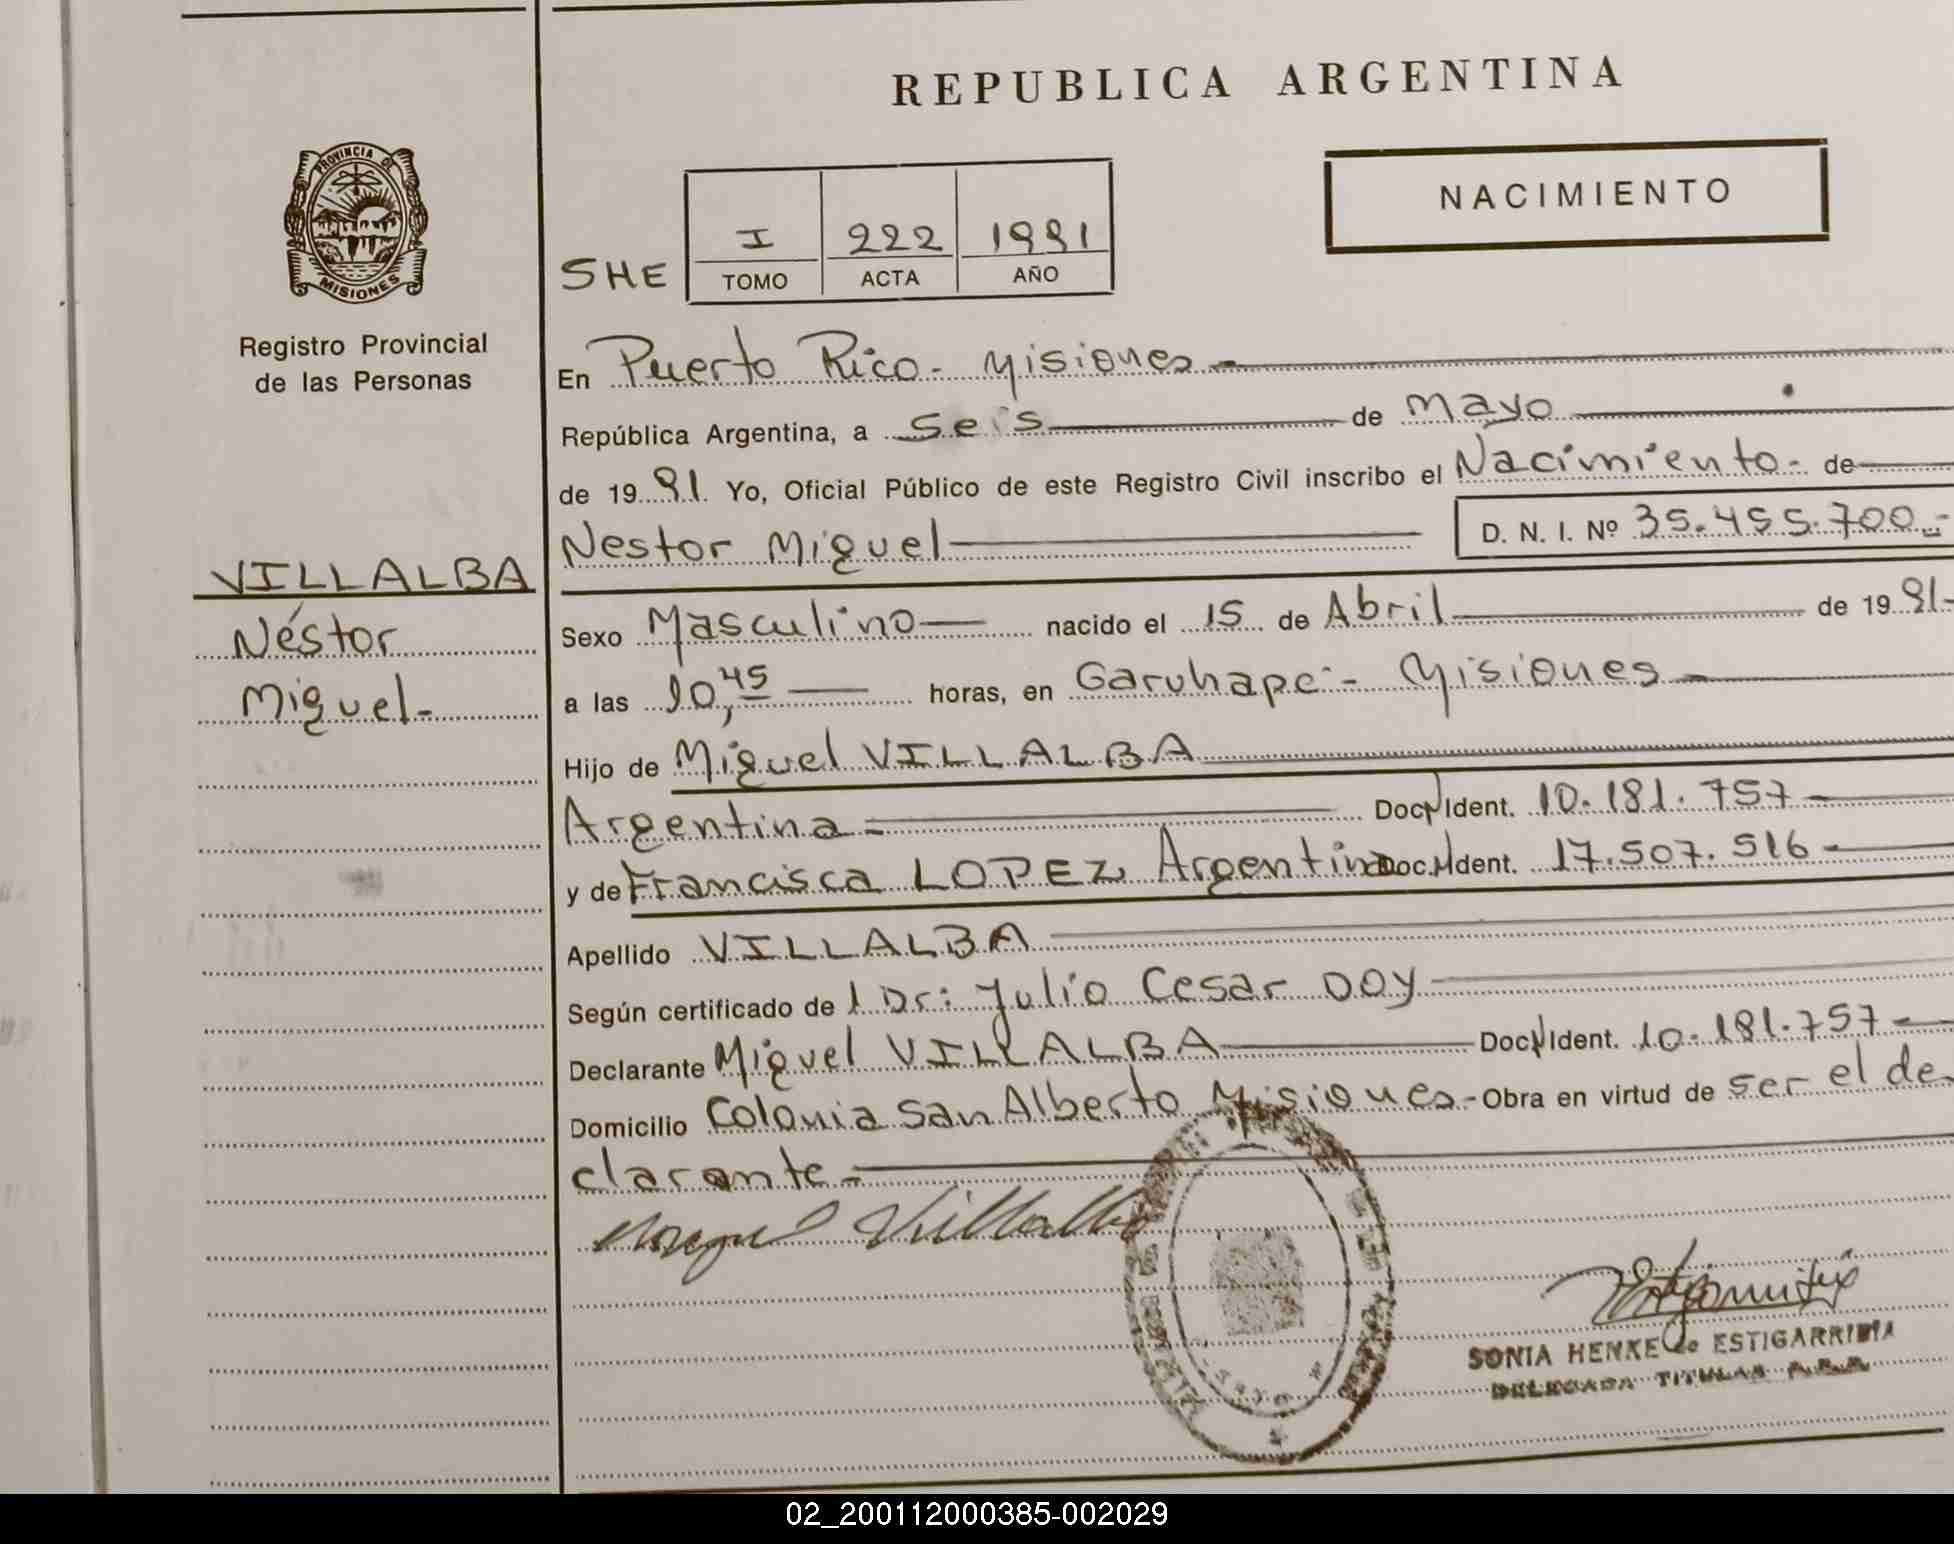 REPUBLICA ARGENTINA
NACIMIENTO
PROVINCIA DE
MISIONES
SHE
I 222 1991
TOMO ACTA AÑO
Registro Provincial
de las Personas
En Puerto Rico - Misiones -
República Argentina, a seis de Mayo
de 1991. Yo, Oficial Público de este Registro Civil inscribo el Nacimiento - de
Nestor Miguel D. N. I. Nº 35.455.700.-
VILLALBA
Néstor
Miguel -
Sexo Masculino nacido el 15 de Abril de 1991-
a las 10,45 horas, en Garuhape - Misiones
Hijo de Miguel VILLALBA
Argentina Doc. Ident. 10.181.757
y de Francisca LOPEZ Argentina Doc. Ident. 17.507.516
Apellido VILLALBA
Según certificado de l Dr: Julio Cesar DOY
Declarante Miguel VILLALBA Doc. Ident. 10.181.757
Domicilio Colonia San Alberto Misiones - Obra en virtud de ser el de
clarante -
Miguel Villalba
SONIA HENKE de ESTIGARRIBIA
DELEGADA TITULAR
02_200112000385-002029